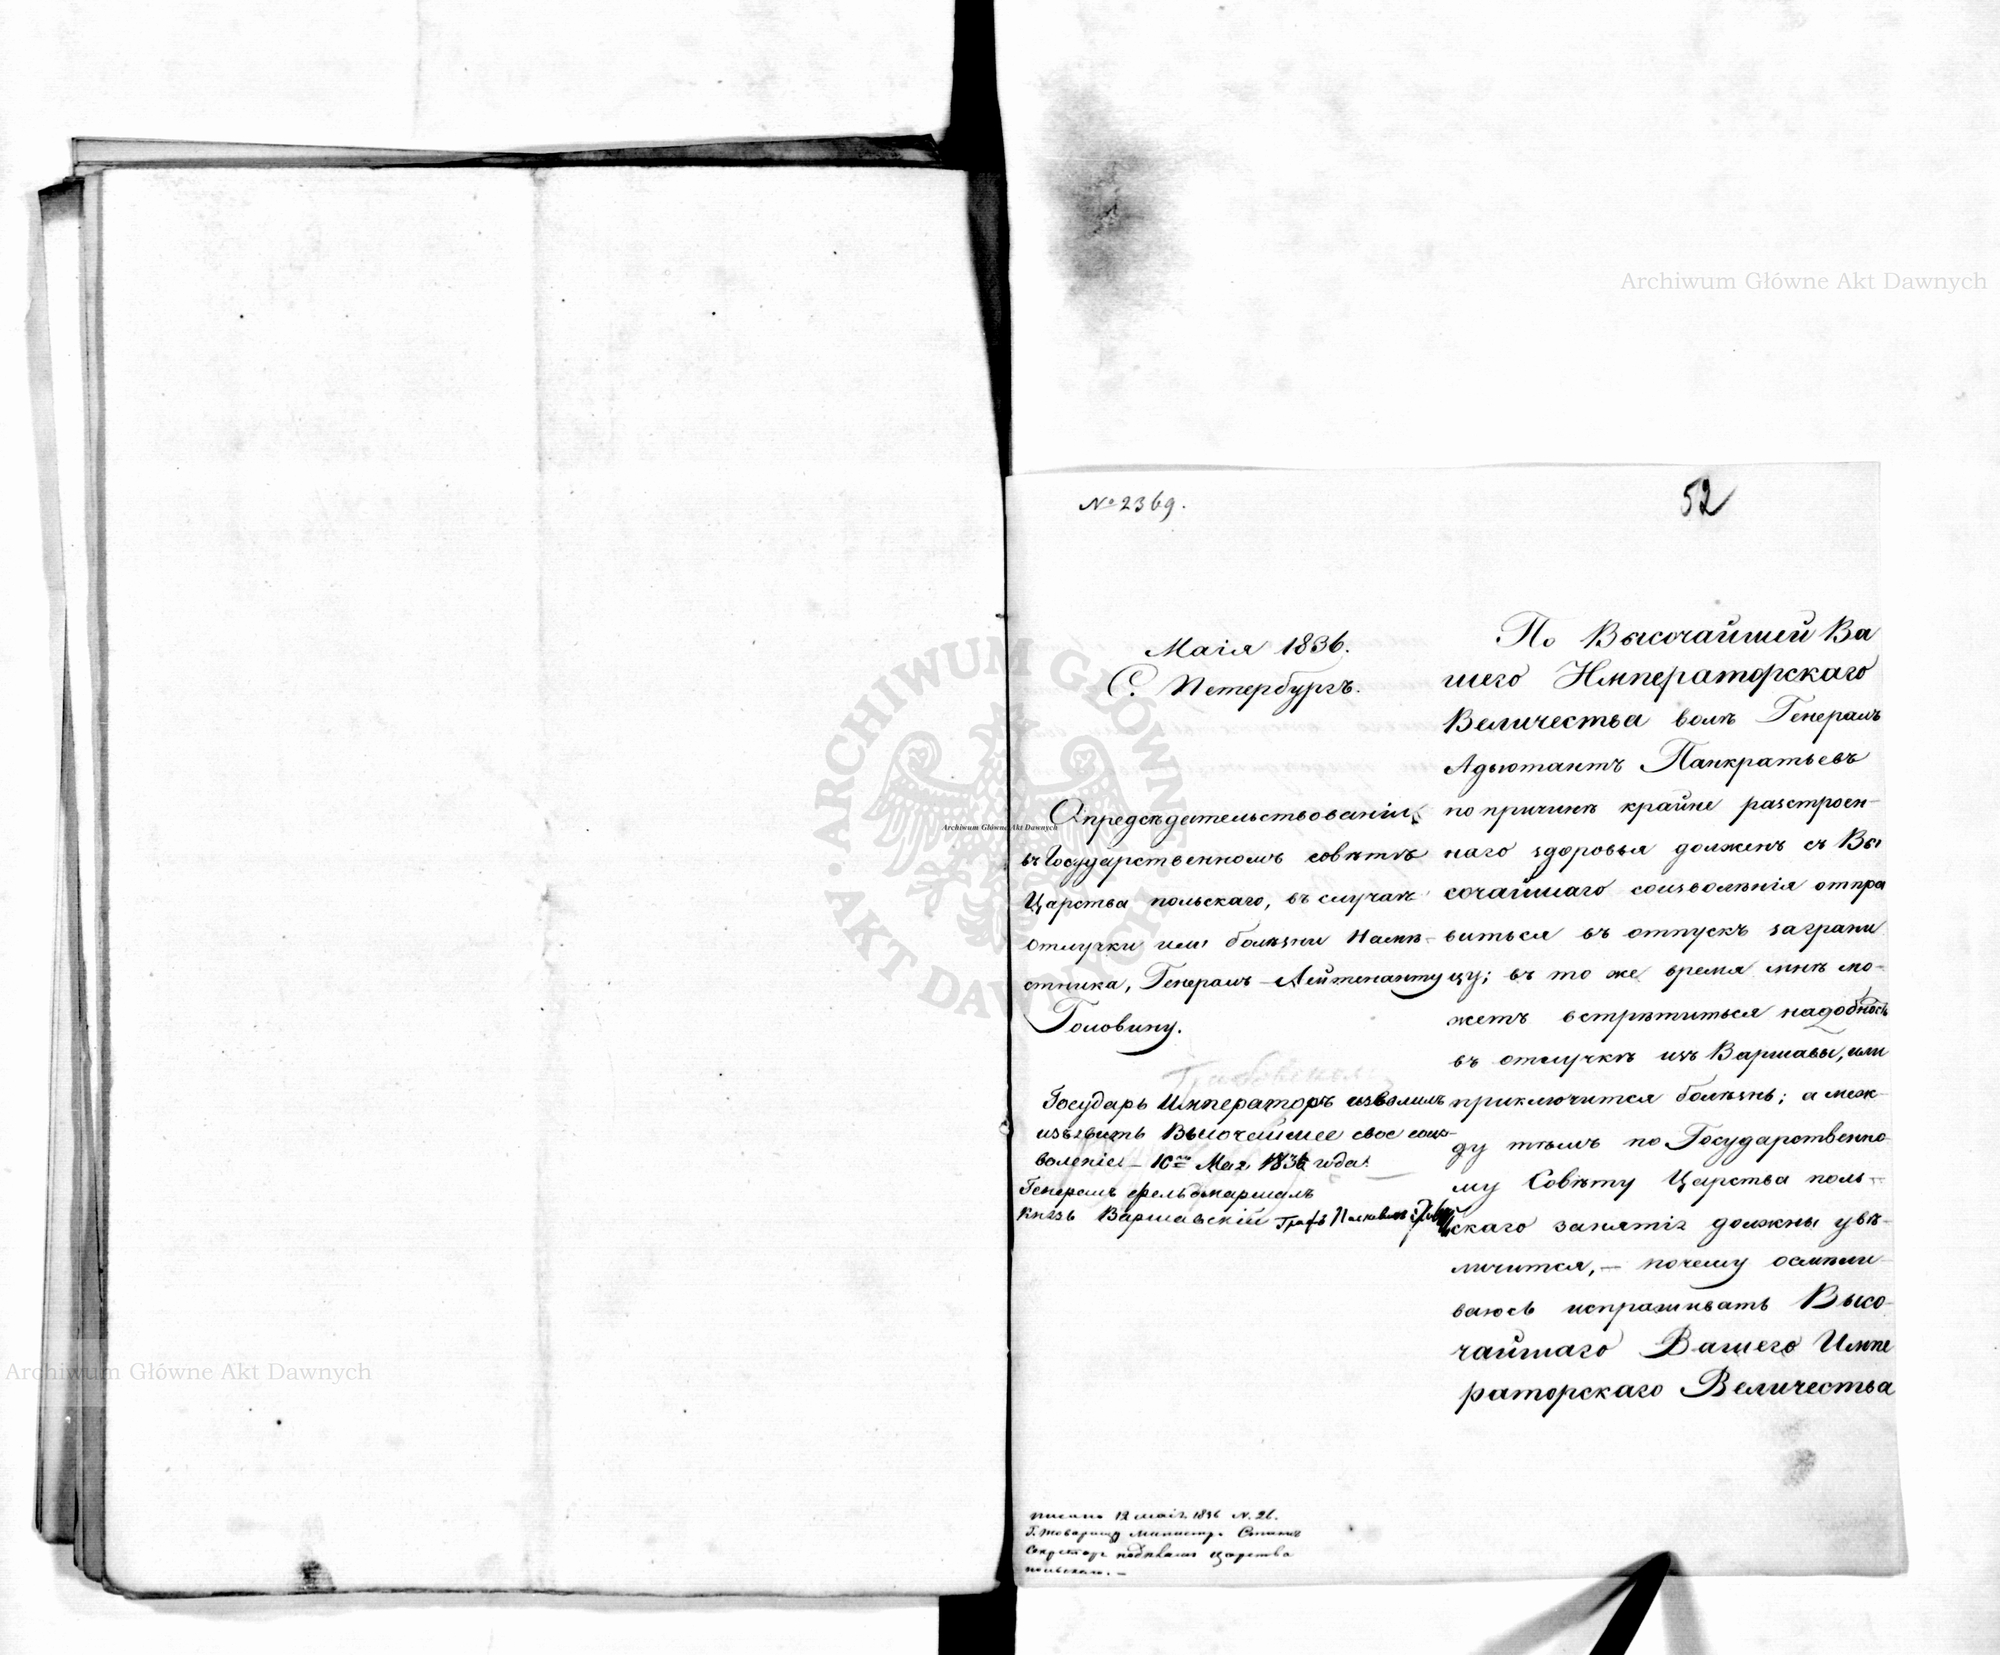 № 2369.
52
Маія 1836.
С. Петербургъ.
О предсѣдательствованіи
въ Государственномъ совѣтѣ
Царства польскаго, въ случаѣ
отлучки или болѣзни Намѣ-
стника, Генералъ-Лейтенанту
Головину.
Государь Императоръ изволилъ
изъявить Высочайшее свое соиз-
воленіе – 10го Мая 1836 года.
Генералъ фельдмаршалъ
Князь Варшавскій Графъ Паскевичъ
писано 12 маія 1836 N. 26.
Г. товарищу Министра Статсъ
Секретаря Царства
польскаго. –
По Высочайшей Ва
шего Императорскаго
Величества волѣ Генералъ
Адъютантъ Панкратьевъ
по причинѣ крайне разстроен-
наго здоровья долженъ съ Вы
сочайшаго соизволѣнія отпра
виться въ отпускъ заграни
цу; въ то же время мнѣ мо-
жетъ встрѣтиться надобность
въ отлучкѣ изъ Варшавы, или
приключится болѣзнь; а меж-
ду тѣмъ по Государственно
му Совѣту Царства поль-
скаго занятія должны увѣ-
личится, – почему осмѣли-
ваюсь испрашивать Высо-
чайшаго Вашего Импе
раторскаго Величества
Archiwum Główne Akt Dawnych
Archiwum Główne Akt Dawnych
Archiwum Główne Akt Dawnych
ARCHIWUM GŁÓWNE AKT DAWNYCH